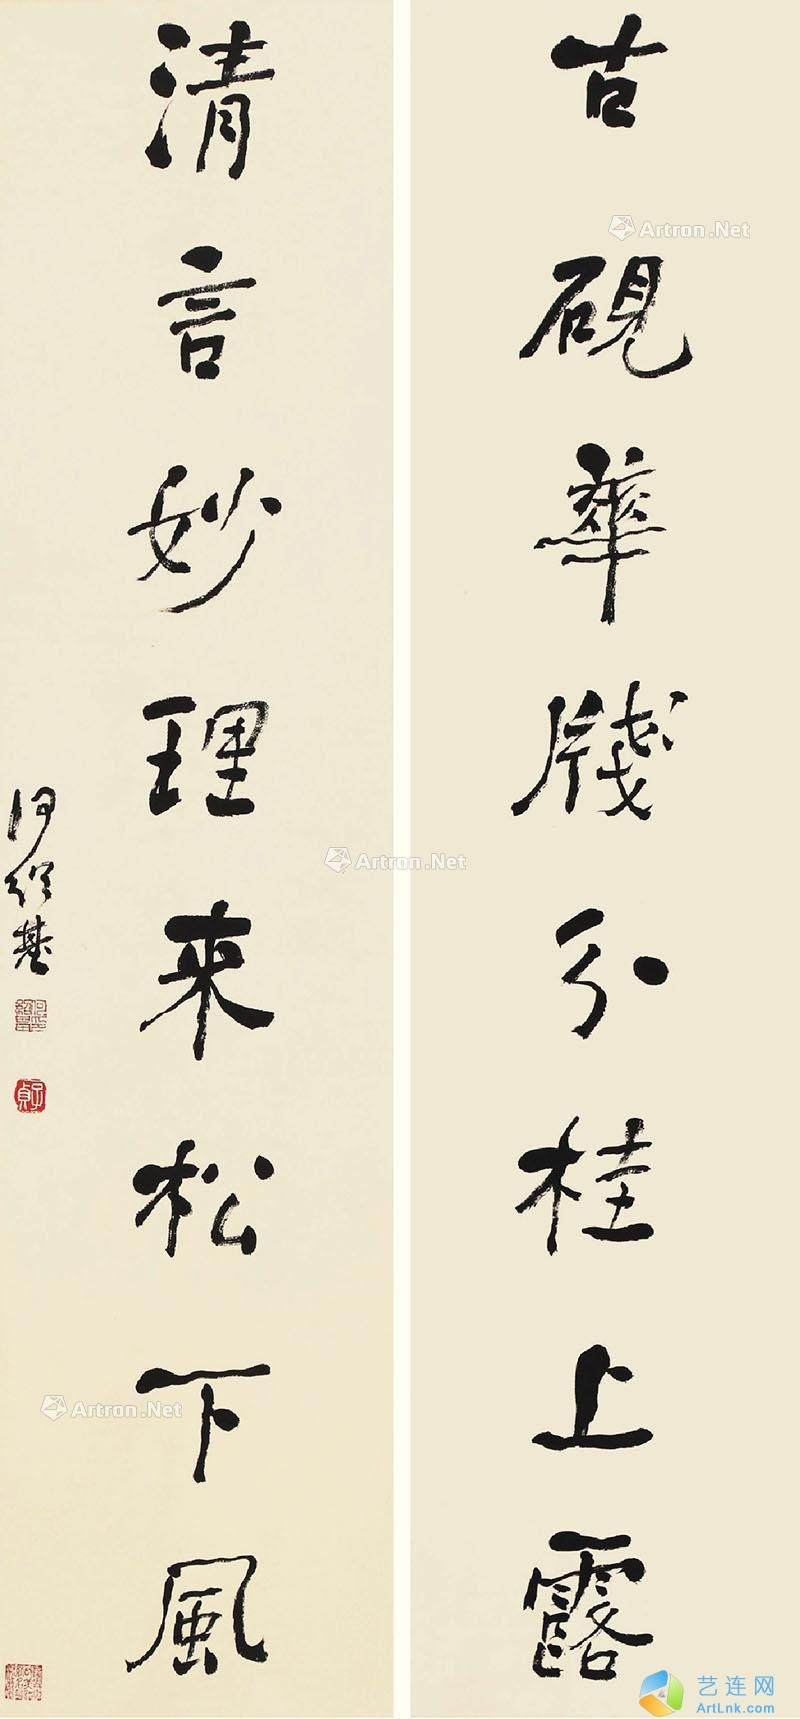 古硯華牋分桂上露
清言妙理来松下風
何紹基
子貞
Artron.Net
Artron.Net
Artron.Net
艺连网
ArtLnk.com